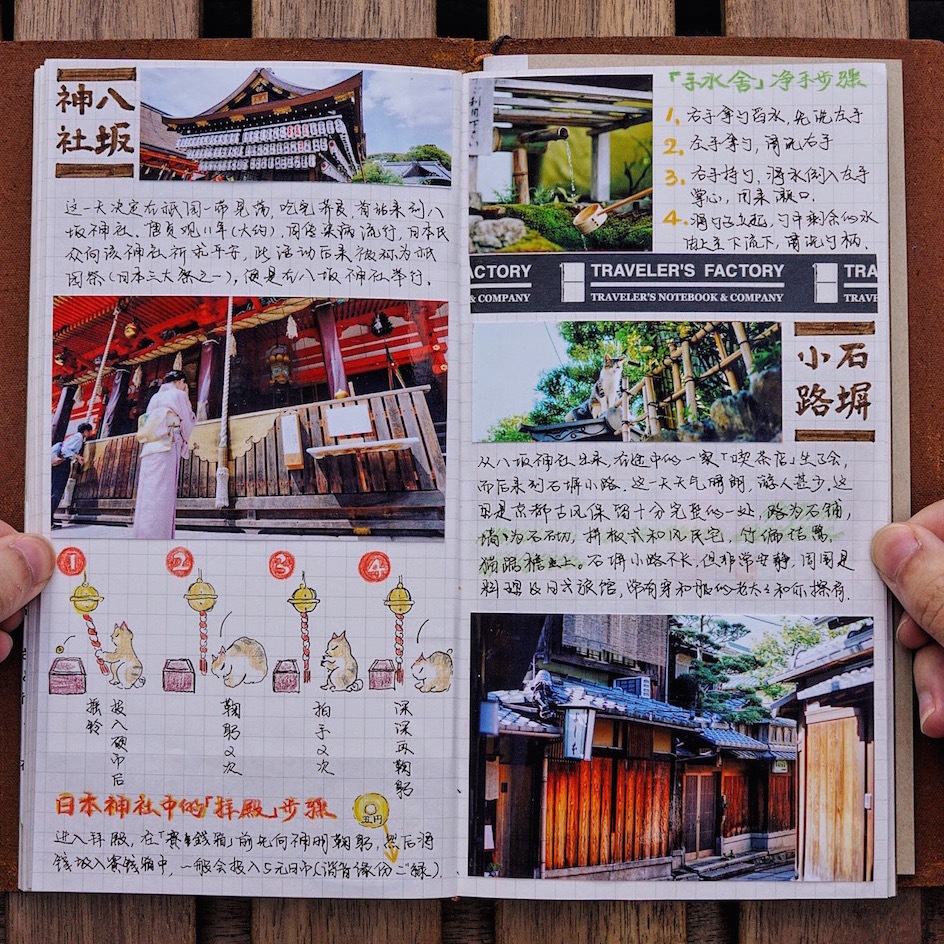 八坂
神社
这一天决定在祇园一带晃荡，吃完养良，首站来到八
坂神社。唐贞观11年(大约)，因传染病流行，日本民
众向该神社祈求平安，此活动后来被称为祇
园祭(日本三大祭之一)，便是在八坂神社举行.
1
2
3
4
投入硬币后
摇铃
鞠躬2次
拍手2次
深深再鞠躬
日本神社中的「拜殿」步骤
五円
进入拜殿，在「賽錢箱」前先向神明鞠躬，然后将
钱放入賽钱箱中，一般会投入5元日币(谐音缘份ご緑).
「手水舍」净手步骤
1. 右手拿勺舀水，先洗左手
2. 左手拿勺，清洗右手
3. 右手持勺，将水倒入左手
掌心，用来漱口.
4. 将勺子立起，勺中剩余的水
由上至下流下，清洗勺柄.
FACTORY
& COMPANY
TRAVELER'S FACTORY
TRAVELER'S NOTEBOOK & COMPANY
TRA
TRAVE
石塀
小路
从八坂神社出来，在途中的一家「喫茶店」坐了会，
而后来到石塀小路. 这一天天气晴朗，游人甚少，这
里是京都古风保留十分完整的一处，路为石铺，
墙为石砌，拼板式和风民宅，竹编
猫踞檐上。石塀小路不长，但非常安静，周围是
料理及日式旅馆，常有穿和服的老太太和你擦肩.